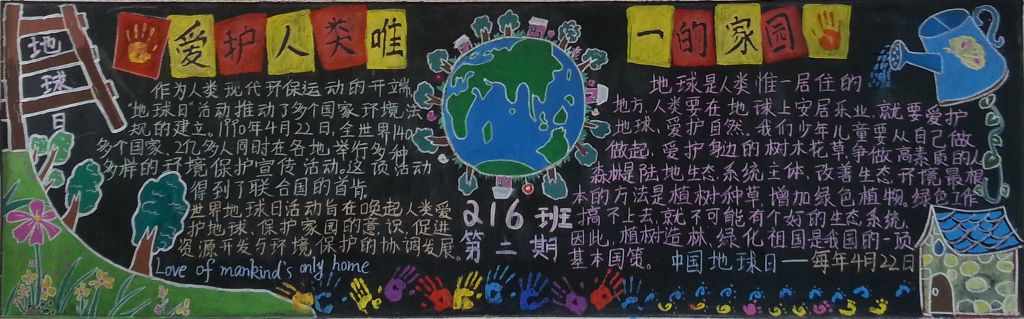 地球日
爱护人类唯一的家园
作为人类现代环保运动的开端,
"地球日"活动推动了多个国家环境法
规的建立。1990年4月22日,全世界140
多个国家、2亿多人同时在各地举行多种
多样的环境保护宣传活动。这项活动
得到了联合国的首肯。
世界地球日活动旨在唤起人类爱
护地球、保护家园的意识,促进
资源开发与环境保护的协调发展。
Love of mankind's only home
216班
第二期
地球是人类惟一居住的
地方,人类要在地球上安居乐业,就要爱护
地球、爱护自然。我们少年儿童要从自己做
做起,爱护身边的树木花草,争做高素质的人
森林是陆地生态系统主体,改善生态环境最根
本的方法是植树种草,增加绿色植物。绿色工作
搞不上去,就不可能有个好的生态系统,
因此,植树造林、绿化祖国是我国的一项
基本国策。
中国地球日——每年4月22日